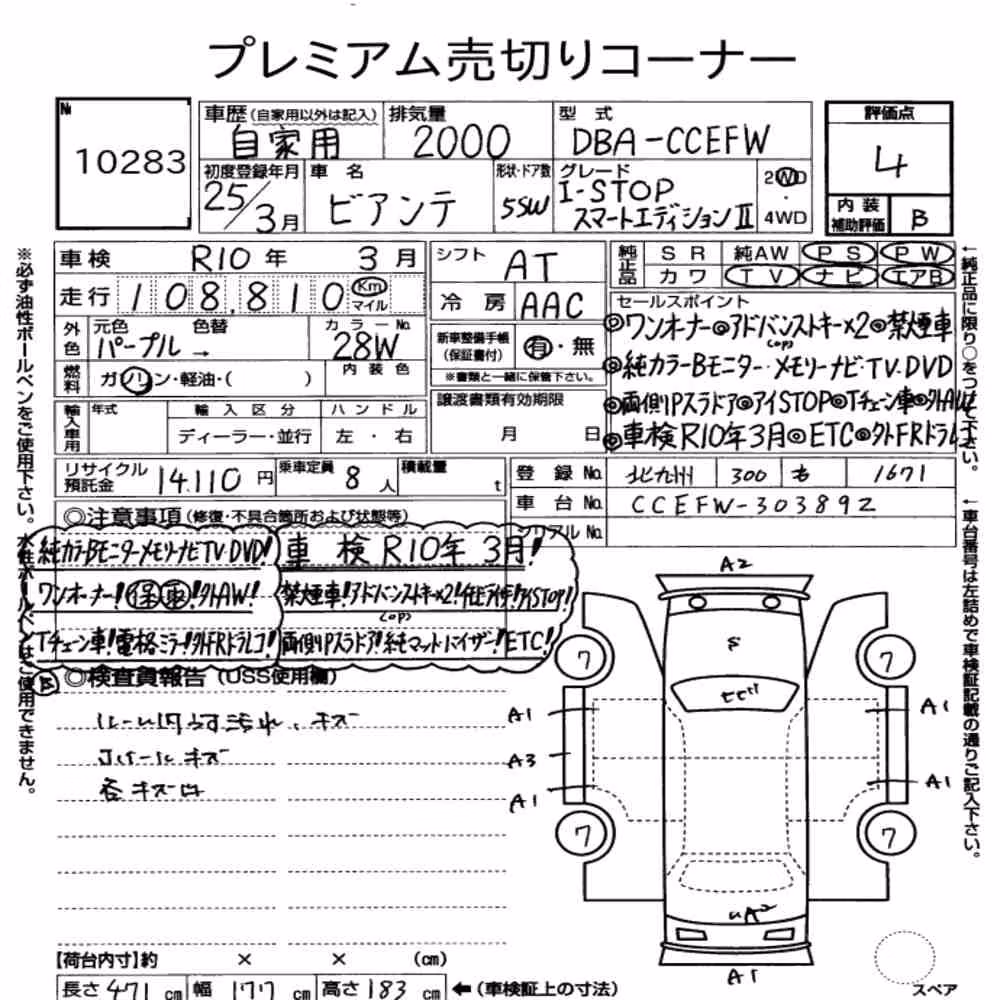 プレミアム売切りコーナー
№ 10283
車歴(自家用以外は記入) 自家用
排気量 2000
型式 DBA-CCEFW
評価点 4
内装補助評価 B
初度登録年月 25/3月
車名 ビアンテ
形状・ドア数 5SW
グレード I-STOP スマートエディションⅡ
2WD
4WD
車検 R10年 3月
シフト AT
純正品 SR 純AW PS PW
カワ TV ナビ エアB
走行 108,810 Km マイル
冷房 AAC
セールスポイント
◎ワンオーナー◎アドバンストキー×2◎禁煙車
(op)
◎純カラーBモニター・メモリーナビ・TV.DVD
◎両側Pスラドア◎アイSTOP◎Tチェーン車◎外AW
◎車検R10年3月◎ETC◎外FRドラレコ
外色 元色 パープル 色替 → カラーNo. 28W
内装色
燃料 ガソリン・軽油・( )
新車整備手帳(保証書付) 有・無
※書類と一緒に保管下さい。
輸入車用 年式 輸入区分 ハンドル
ディーラー・並行 左・右
譲渡書類有効期限
月 日
リサイクル預託金 14.110円
乗車定員 8人
積載量 t
登録No. 北九州 300 も 1671
車台No. CCEFW-303892
シリアルNo.
◎注意事項(修復・不具合箇所および状態等)
純カラーBモニターメモリーナビTV DVD!
車検R10年3月!
ワンオーナー!保車!外AW!
禁煙車!アドバンストキー×2!
アイSTOP!
(op)
Tチェーン車!電格ミラー!外FRドラレコ!
両側Pスラドア!純マットバイザー!ETC!
B
◎検査員報告(USS使用欄)
キズ
キズ
※必ず油性ボールペンをご使用下さい。水性ボールペンはご使用できません。
←純正品に限り○をつけて下さい。
←車台番号は左詰めで車検証記載の通りご記入下さい。
A2
S
7
7
A1
A1
A3
A1
A1
7
7
A2
A1
スペア
【荷台内寸】約 × × (cm)
長さ 471 cm 幅 177 cm 高さ 183 cm ←(車検証上の寸法)